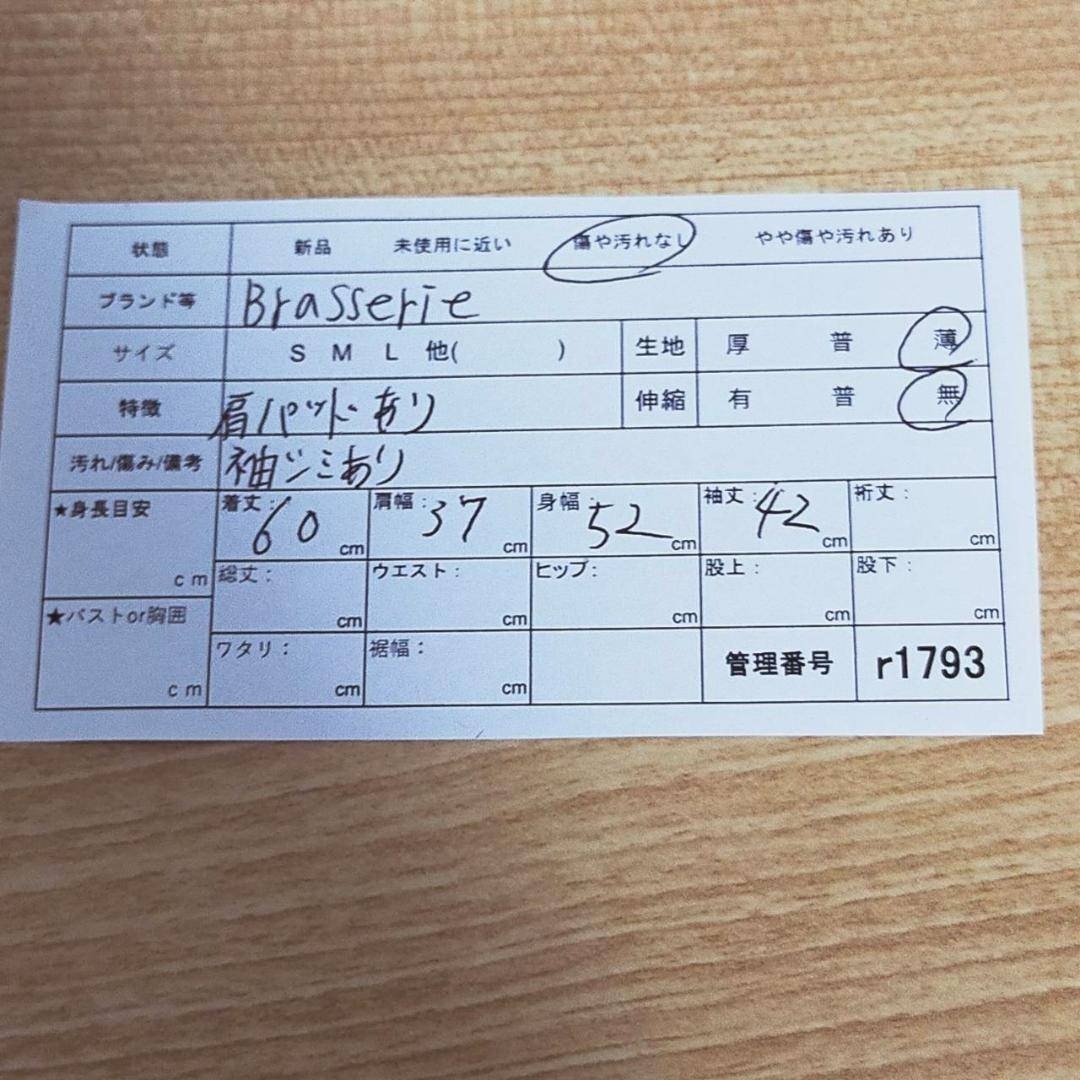 状態 新品 未使用に近い 傷や汚れなし やや傷や汚れあり
ブランド等 Brasserie
サイズ S M L 他( ) 生地 厚 普 薄
特徴 肩パットあり 伸縮 有 普 無
汚れ/傷み/備考 袖シミあり
★身長目安 cm 着丈: 60 cm 肩幅: 37 cm 身幅: 52 cm 袖丈: 42 cm 裄丈: cm
総丈: cm ウエスト: cm ヒップ: cm 股上: cm 股下: cm
★バストor胸囲 cm ワタリ: cm 裾幅: cm 管理番号 r1793